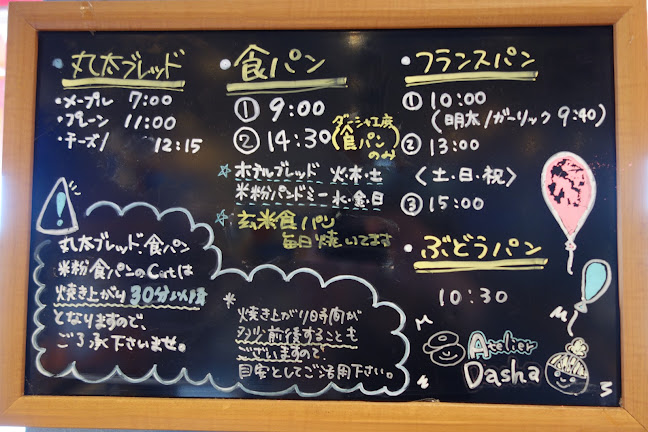 ・丸太ブレッド
・メープル 7:00
・プレーン 11:00
・チーズ/ 12:15
・食パン
① 9:00
② 14:30 (ダーシャ工房 食パンのみ)
☆ホテルブレッド 火・木・土
米粉パンドミー 水・金・日
☆玄米食パン
毎日焼いてます
・フランスパン
① 10:00
(明太/ガーリック 9:40)
② 13:00
〈土・日・祝〉
③ 15:00
・ぶどうパン
10:30
!
丸太ブレッド・食パン
米粉食パンのCutは
焼き上がり30分以降
となりますので、
ご了承下さいませ。
*焼き上がり時間が
多少前後することも
ございますので
目安としてご活用下さい。
Atelier
Dasha